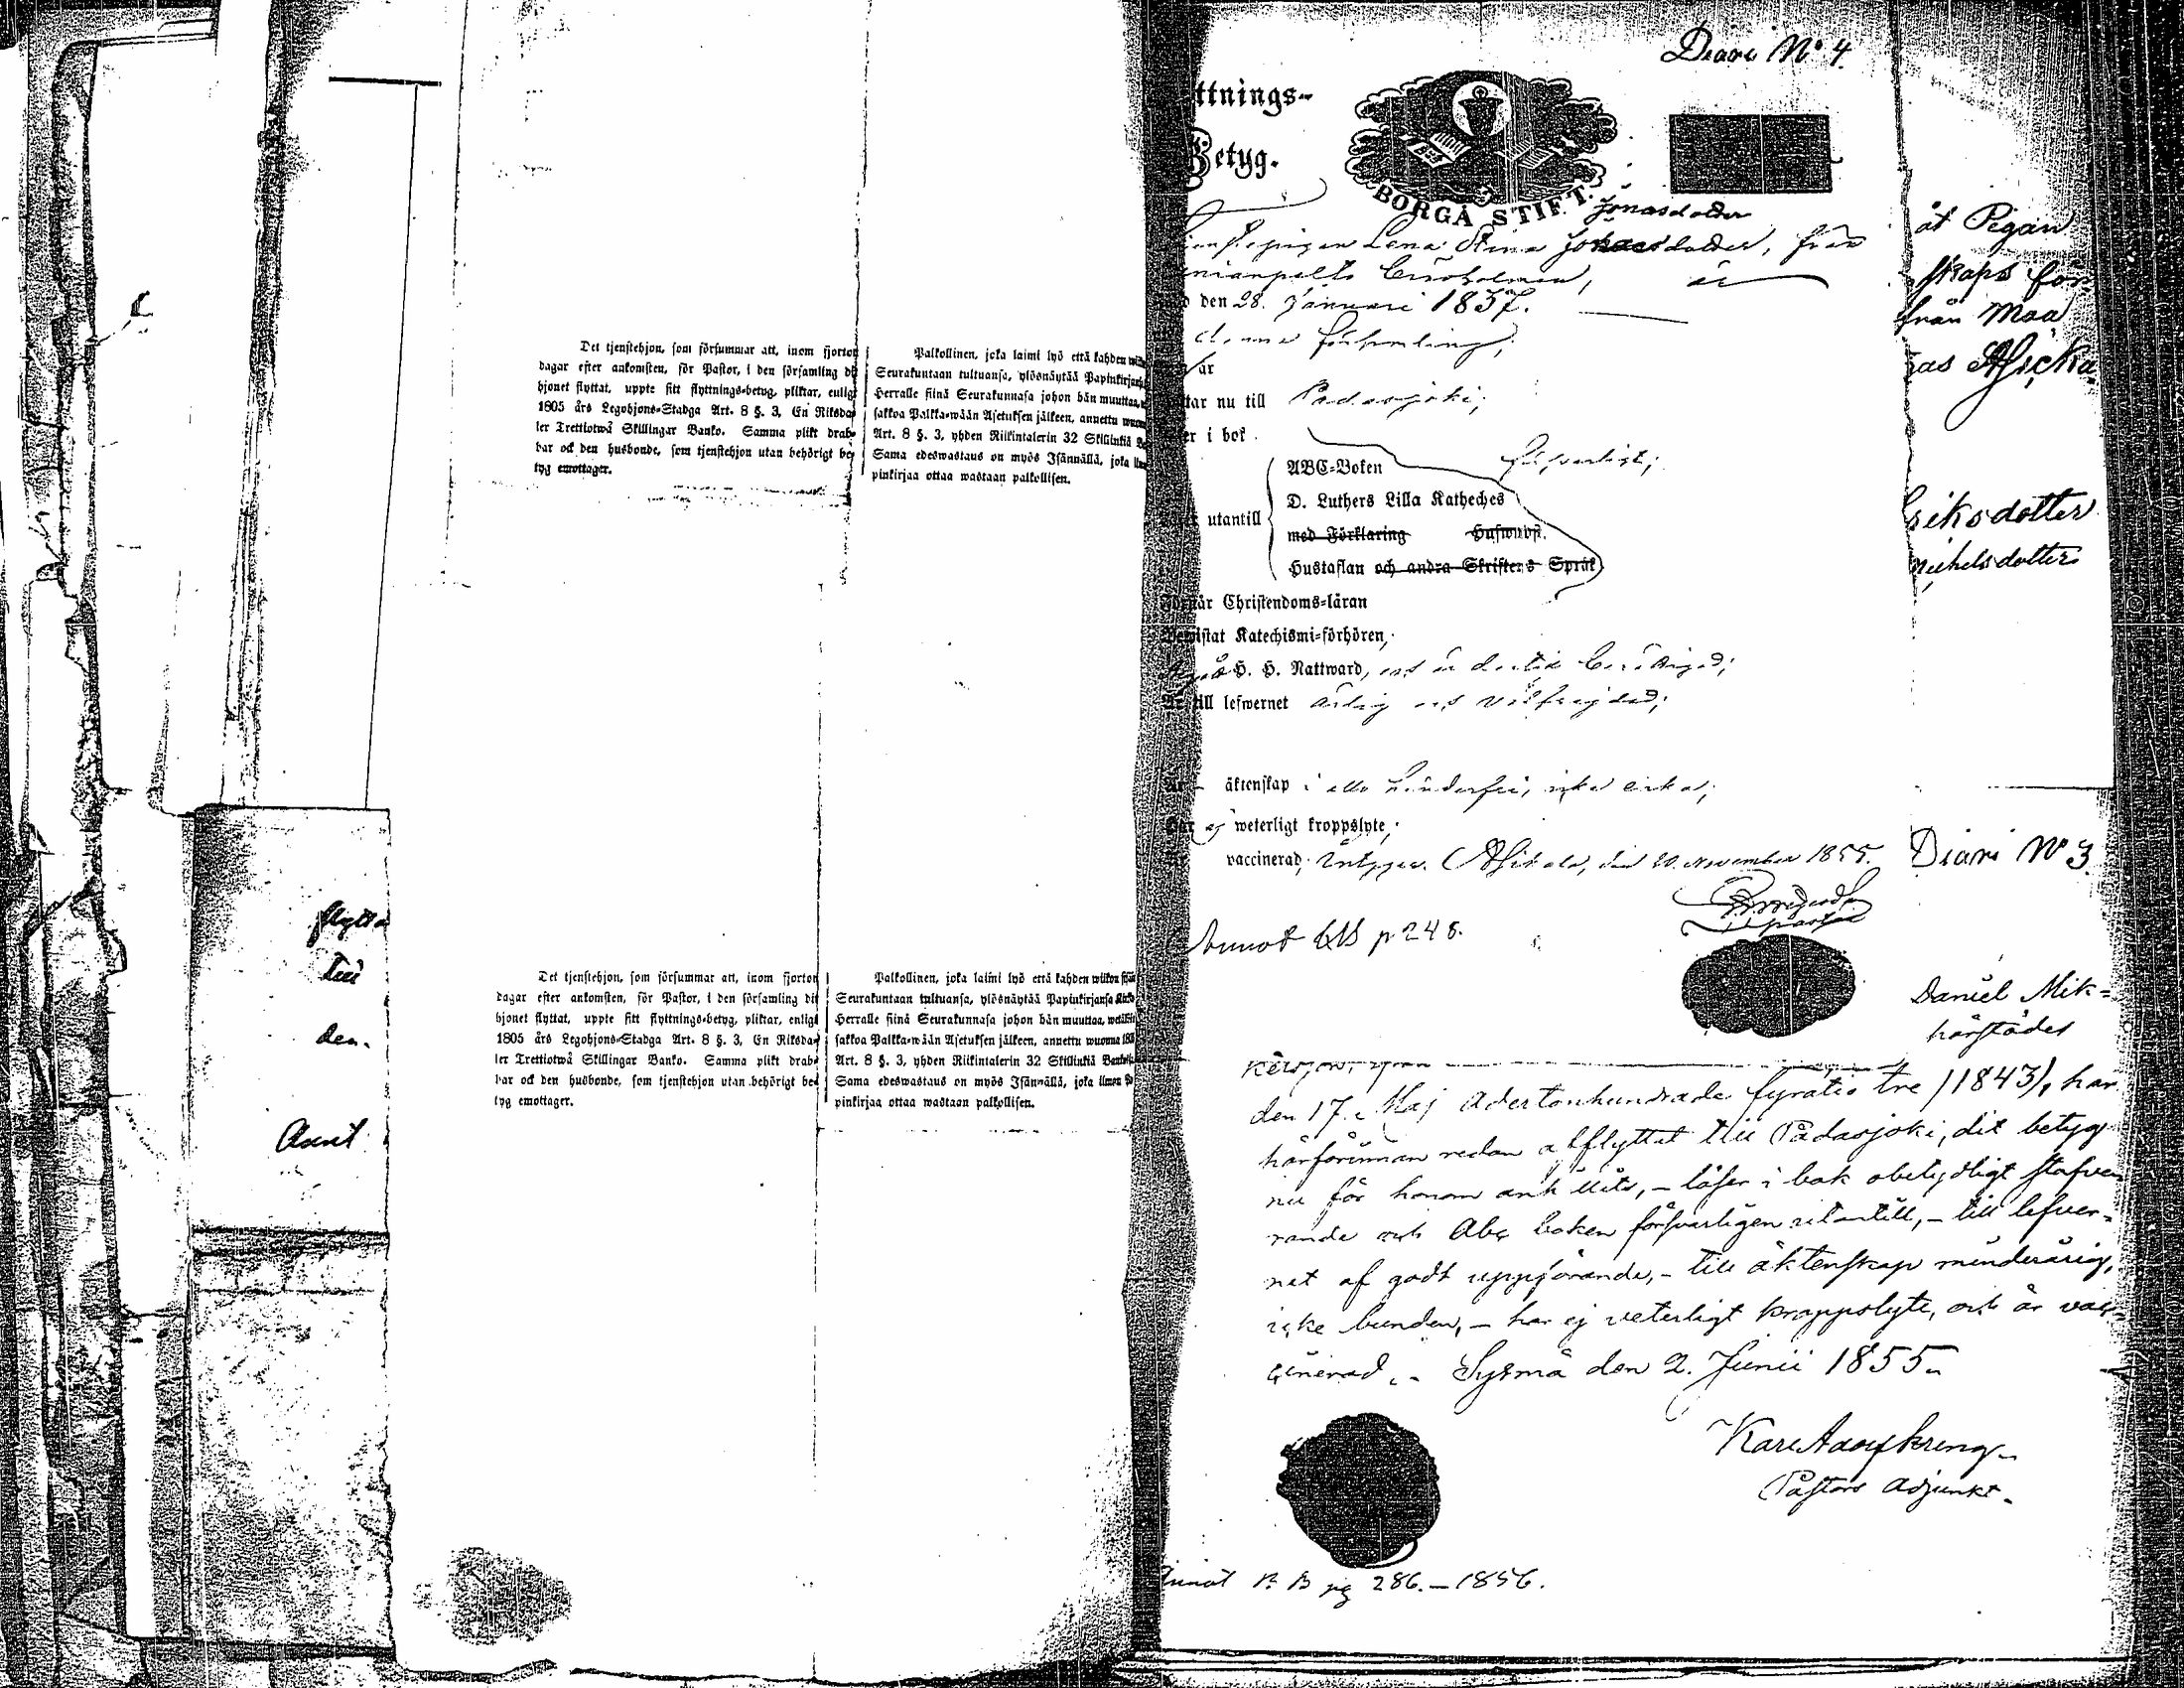 flytta
till
den
Det tjenstehjon, som försummar att, inom fjorton
dagar efter ankomsten, för Pastor, i den församling dit
hjonet flyttat, uppte sitt flyttnings-betyg, pliktar, enligt
1805 års Legohjons-Stadga Art. 8 §. 3, En Riksda-
ler Trettiotwå Skillingar Banko. Samma plikt drab-
bar ock den husbonde, som tjenstehjon utan behörigt be-
tyg emottager.
Palkollinen, joka laimi lyö että kahden
Seurakuntaan tultuansa, ylösnäytää Papinkirjansa
Herralle siinä Seurakunnasa johon hän muuttaa,
sakkoa Palkka-wään Asetuksen jälkeen, annettu wuonna
Art. 8 §. 3, yhden Riikintalerin 32 Skillinkiä
Sama edeswastaus on myös Isännällä, joka
pinkirjaa ottaa wastaan palkollisen.
Det tjenstehjon, som försummar att, inom fjorton
dagar efter ankomsten, för Pastor, i den församling dit
hjonet flyttat, uppte sitt flyttnings-betyg, pliktar, enligt
1805 års Legohjons-Stadga Art. 8 §. 3, En Riksda-
ler Trettiotwå Skillingar Banko. Samma plikt drab-
bar ock den husbonde, som tjenstehjon utan behörigt be-
tyg emottager.
Palkollinen, joka laimi lyö että kahden wiikon
Seurakuntaan tultuansa, ylösnäytää Papinkirjansa Kirko-
Herralle siinä Seurakunnasa johon hän muuttaa, wetäköön
sakkoa Palkka-wään Asetuksen jälkeen, annettu wuonna 1805
Art. 8 §. 3, yhden Riikintalerin 32 Skillinkiä Bankossa
Sama edeswastaus on myös Isännällä, joka ilman Pa-
pinkirjaa ottaa wastaan palkollisen.
Diari No 4.
ttnings-
Betyg.
BORGÅ STIFT.
Jonasdotter
Lena Stina dotter, från
är
den 28. Januari 1837.
denna församling;
är
tar nu till Padasjoki;
er i bok
försvarligt;
utantill
ABC-Boken
D. Luthers Lilla Katheches
med Förklaring
Hustaflan och andra Skriftens Språk
Förstår Christendoms-läran
Bewistat Katechismi-förhören,
H. H. Nattward, och är dertill berättigad;
Är till lefwernet ärlig och välfrejdad;
äktenskap i allo hinderfri, icke enka;
Har ej weterligt kroppslyte;
vaccinerad; intygar. Asikkala, den 20. November 1855.
Annot KB p 248.
åt Pigan
skaps för-
från Maa
Asicka
Eriksdotter
Michelsdotter
Diari No 3.
Daniel Mik-
härstädes
den 17. Maj Adertonhundrade fyratio tre (1843), har
härförinnan redan afflyttat till Padasjoki, dit betyg
nu för honom anhålles, - läser i bok obetydligt stafve-
rande och Abc boken försvarligen utantill, - till lefver-
net af godt uppförande, - till äktenskap minderårig,
icke bunden, - har ej veterligt kroppslyte, och är vac-
cinerad. - Sysmä den 2. Junii 1855.
Pastors Adjunkt.
Annot pg 286. - 1856.